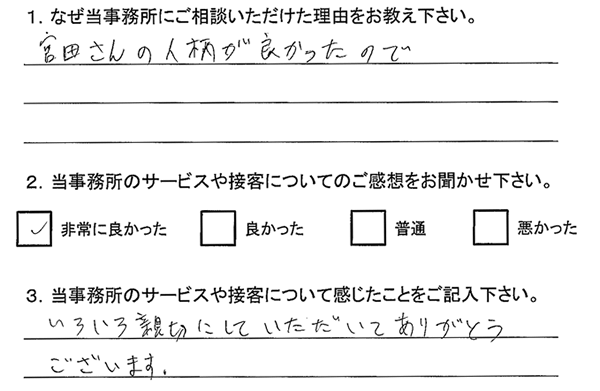 1. なぜ当事務所にご相談いただけた理由をお教え下さい。
宮田さんの人柄が良かったので
2. 当事務所のサービスや接客についてのご感想をお聞かせ下さい。
✓ 非常に良かった 良かった 普通 悪かった
3. 当事務所のサービスや接客について感じたことをご記入下さい。
いろいろ親切にしていただいてありがとう
ございます。